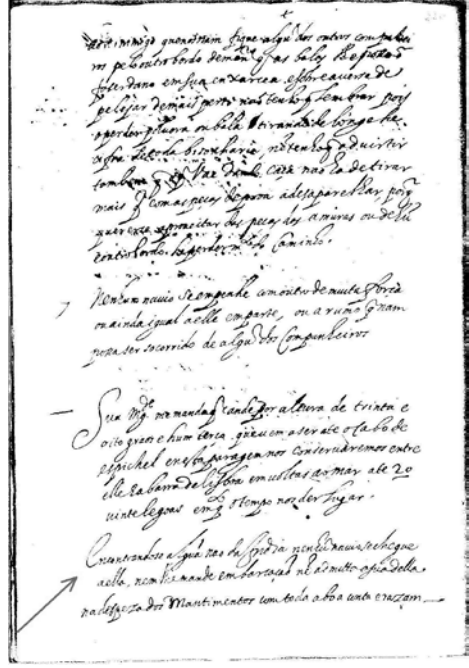 inimigo que não tem fique algũ dos outros companhei
ros pelo outro bordo de man.ra q as balas
fazer dano em sua enxarcea, e sobre a verga de
pelejar de mais perto não tenho q lembrar pois
a perder poluora ou bala tirando de longe he
de toda bisonharia, nē tenho q aduirtir
tambem q cada não ha de tirar
mais q com as peças de proa a desaparelhar, porq
querense aproueitar das peças das amuras ou de hũ
e outro bordo he perder m.to do caminho.
Nenhum nauio se empenhe com outro de muita força
ou ainda igual a elle em parte, ou a rumo q nam
possa ser socorrido de algũ dos companheiros
Sua Mg.de me manda q ande por altura de trinta e
oito graos e hum terço, que uem a ser ate o Cabo de
espichel e nesta paragem nos conseruaremos entre
elle e a barra de lisboa em uoltas ao mar ate 20
uinte legoas em q o tempo nos der lugar.
Encontrandose algũa nao da India nenhũ nauio se chegue
a ella, nem lhe mande embarcação nē admitta a sua della
na despeza dos Mantimentos com toda a boa conta e razam